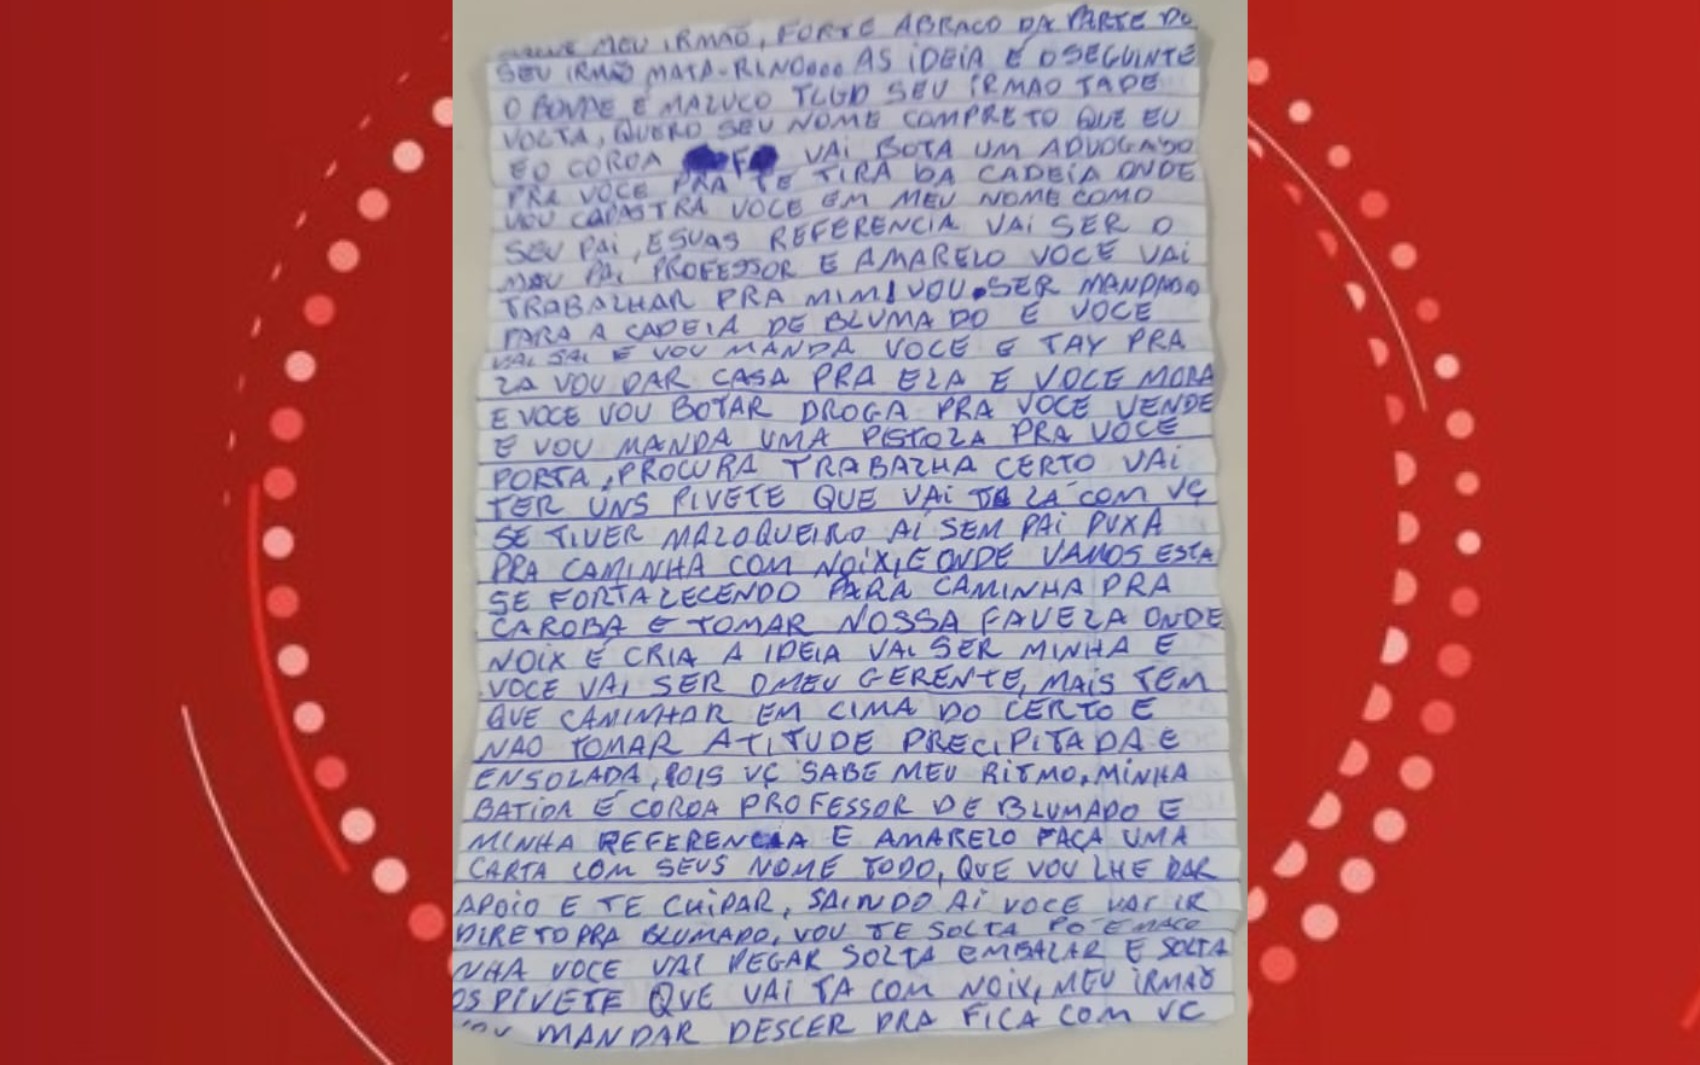 MEU IRMÃO, FORTE ABRAÇO DA PARTE DO
SEU IRMÃO MATA-RINDOOO AS IDEIA É O SEGUINTE
O BONDE É MALUCO TLGD SEU IRMAO TADE
VOLTA, QUERO SEU NOME COMPRETO QUE EU
E O COROA F VAI BOTA UM ADVOGADO
PRA VOCE PRA TE TIRA DA CADEIA ONDE
VOU CADASTRA VOCE EM MEU NOME COMO
SEU PAI, E SUAS REFERENCIA VAI SER O
MEU PAI PROFESSOR E AMARELO VOCE VAI
TRABALHAR PRA MIM! VOU SER MANDADO
PARA A CADEIA DE BLUMADO E VOCE
VAI SAI E VOU MANDA VOCE E TAY PRA
LA VOU DAR CASA PRA ELA E VOCE MORA
E VOCE VOU BOTAR DROGA PRA VOCE VENDE
E VOU MANDA UMA PISTOLA PRA VOCE
PORTA, PROCURA TRABALHA CERTO VAI
TER UNS PIVETE QUE VAI TA LÁ COM VÇ
SE TIVER MALOQUEIRO AÍ SEM PAI PUXA
PRA CAMINHA COM NOIX, E ONDE VAMOS ESTA
SE FORTALECENDO PARA CAMINHA PRA
CAROBA E TOMAR NOSSA FAVELA ONDE
NOIX É CRIA A IDEIA VAI SER MINHA E
VOCE VAI SER O MEU GERENTE, MAIS TEM
QUE CAMINHAR EM CIMA DO CERTO E
NAO TOMAR ATITUDE PRECIPITADA E
ENSOLADA, POIS VÇ SABE MEU RITMO, MINHA
BATIDA É COROA PROFESSOR DE BLUMADO E
MINHA REFERENCIA E AMARELO FAÇA UMA
CARTA COM SEUS NOME TODO, QUE VOU LHE DAR
APOIO E TE CUIPAR, SAINDO AI VOCE VAI IR
DIRETO PRA BLUMADO, VOU TE SOLTA PÓ E MACO
NHA VOCE VAI PEGAR SOLTA EMBALAR E SOLTA
OS PIVETE QUE VAI TA COM NOIX, MEU IRMAO
VOU MANDAR DESCER PRA FICA COM VC